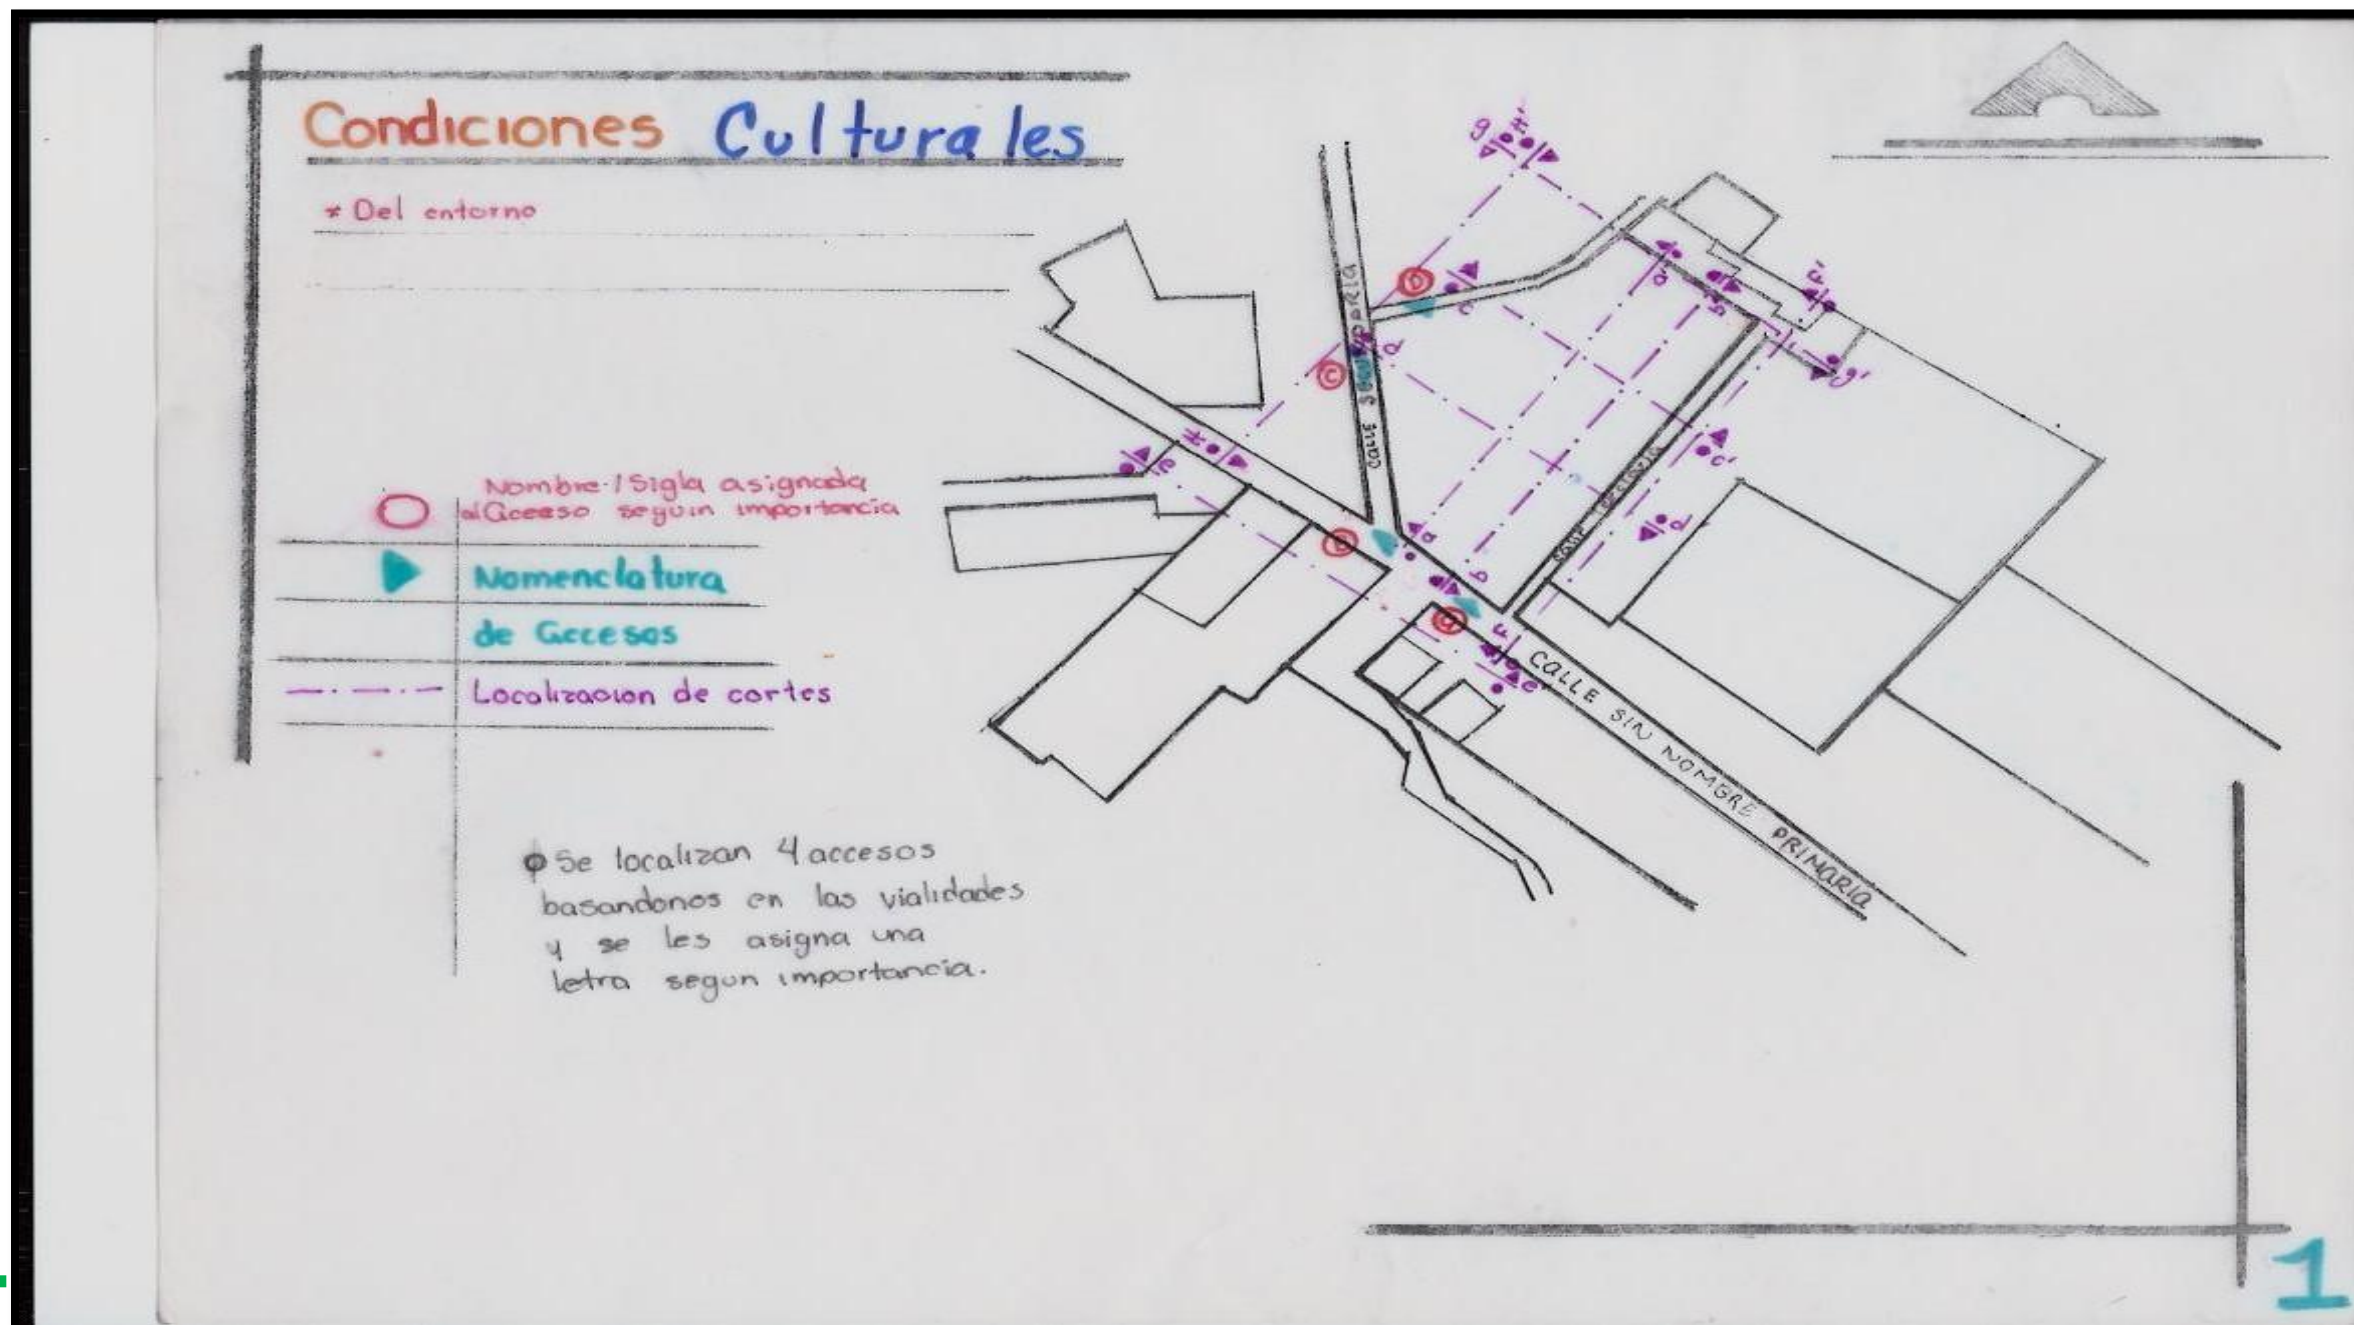 Condiciones Culturales
* Del entorno
Nombre/Sigla asignada
al acceso seguin importancia
Nomenclatura
de accesos
Localizacion de cortes
Se localizan 4 accesos
basandonos en las vialidades
y se les asigna una
letra segun importancia.
g
D
c
d
C
a'
F'
g'
e
c'
d'
B
a
b
a
F
e'
CALLE SIN NOMBRE PRIMARIA
calle
1